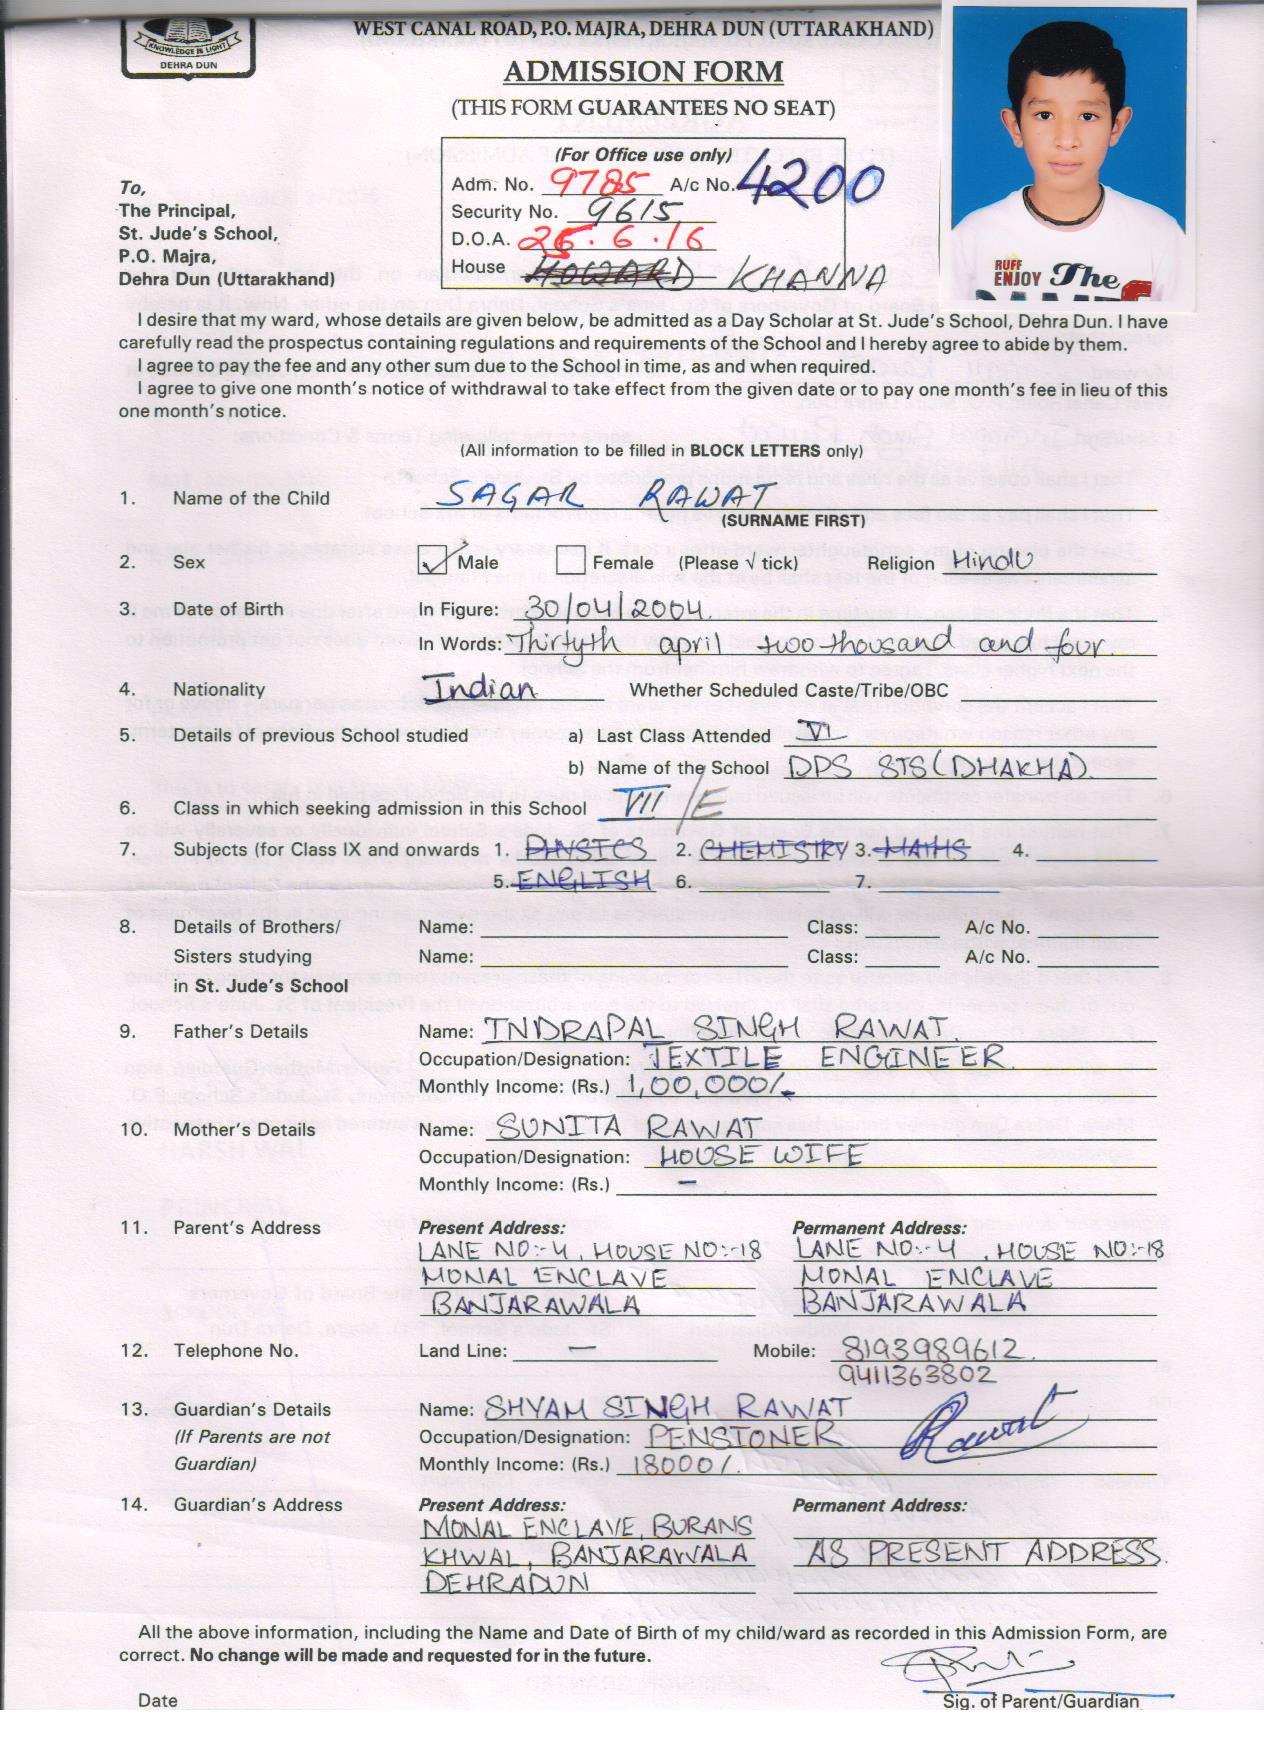 WEST CANAL ROAD, P.O. MAJRA, DEHRA DUN (UTTARAKHAND)
KNOWLEDGE IS LIGHT
DEHRA DUN
ADMISSION FORM
(THIS FORM GUARANTEES NO SEAT)
(For Office use only)
Adm. No. 9785 A/c No. 4200
Security No. 9615
D.O.A. 25.6.16
House HOWARD KHANNA
To,
The Principal,
St. Jude's School,
P.O. Majra,
Dehra Dun (Uttarakhand)
RUFF
ENJOY The
I desire that my ward, whose details are given below, be admitted as a Day Scholar at St. Jude's School, Dehra Dun. I have
carefully read the prospectus containing regulations and requirements of the School and I hereby agree to abide by them.
I agree to pay the fee and any other sum due to the School in time, as and when required.
I agree to give one month's notice of withdrawal to take effect from the given date or to pay one month's fee in lieu of this
one month's notice.
(All information to be filled in BLOCK LETTERS only)
1. Name of the Child SAGAR RAWAT
(SURNAME FIRST)
2. Sex Male Female (Please √ tick) Religion Hindu
3. Date of Birth In Figure: 30/04/2004.
In Words: Thirtyth april two thousand and four
4. Nationality Indian Whether Scheduled Caste/Tribe/OBC
5. Details of previous School studied a) Last Class Attended VI
b) Name of the School DPS STS (DHAKHA).
6. Class in which seeking admission in this School VII /E
7. Subjects (for Class IX and onwards 1. PHYSICS 2. CHEMISTRY 3. MATHS 4.
5. ENGLISH 6. 7.
8. Details of Brothers/ Name: Class: A/c No.
Sisters studying Name: Class: A/c No.
in St. Jude's School
9. Father's Details Name: INDRAPAL SINGH RAWAT
Occupation/Designation: TEXTILE ENGINEER
Monthly Income: (Rs.) 1,00,000/-
10. Mother's Details Name: SUNITA RAWAT
Occupation/Designation: HOUSE WIFE
Monthly Income: (Rs.) -
11. Parent's Address Present Address: Permanent Address:
LANE NO:-4, HOUSE NO:-18 LANE NO:-4, HOUSE NO:-18
MONAL ENCLAVE MONAL ENCLAVE
BANJARAWALA BANJARAWALA
12. Telephone No. Land Line: - Mobile: 8193989612.
9411363802
13. Guardian's Details Name: SHYAM SINGH RAWAT
(If Parents are not Occupation/Designation: PENSIONER Rawat
Guardian) Monthly Income: (Rs.) 18000/.
14. Guardian's Address Present Address: Permanent Address:
MONAL ENCLAVE, BURANS
KHWAL, BANJARAWALA AS PRESENT ADDRESS.
DEHRADUN
All the above information, including the Name and Date of Birth of my child/ward as recorded in this Admission Form, are
correct. No change will be made and requested for in the future.
Date Sig. of Parent/Guardian